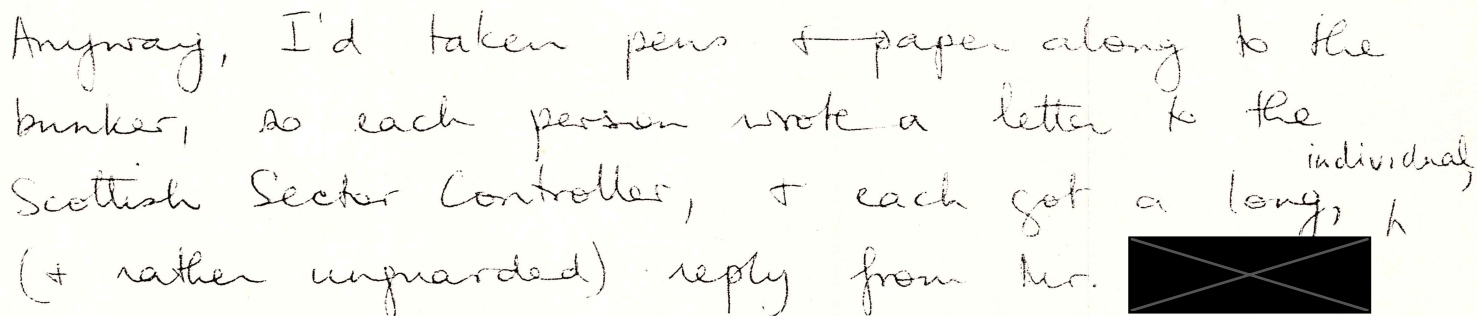 Anyway, I'd taken pens + paper along to the
bunker, so each person wrote a letter to the
Scottish Sector Controller, + each got a long, individual,
(+ rather unguarded) reply from Mr.